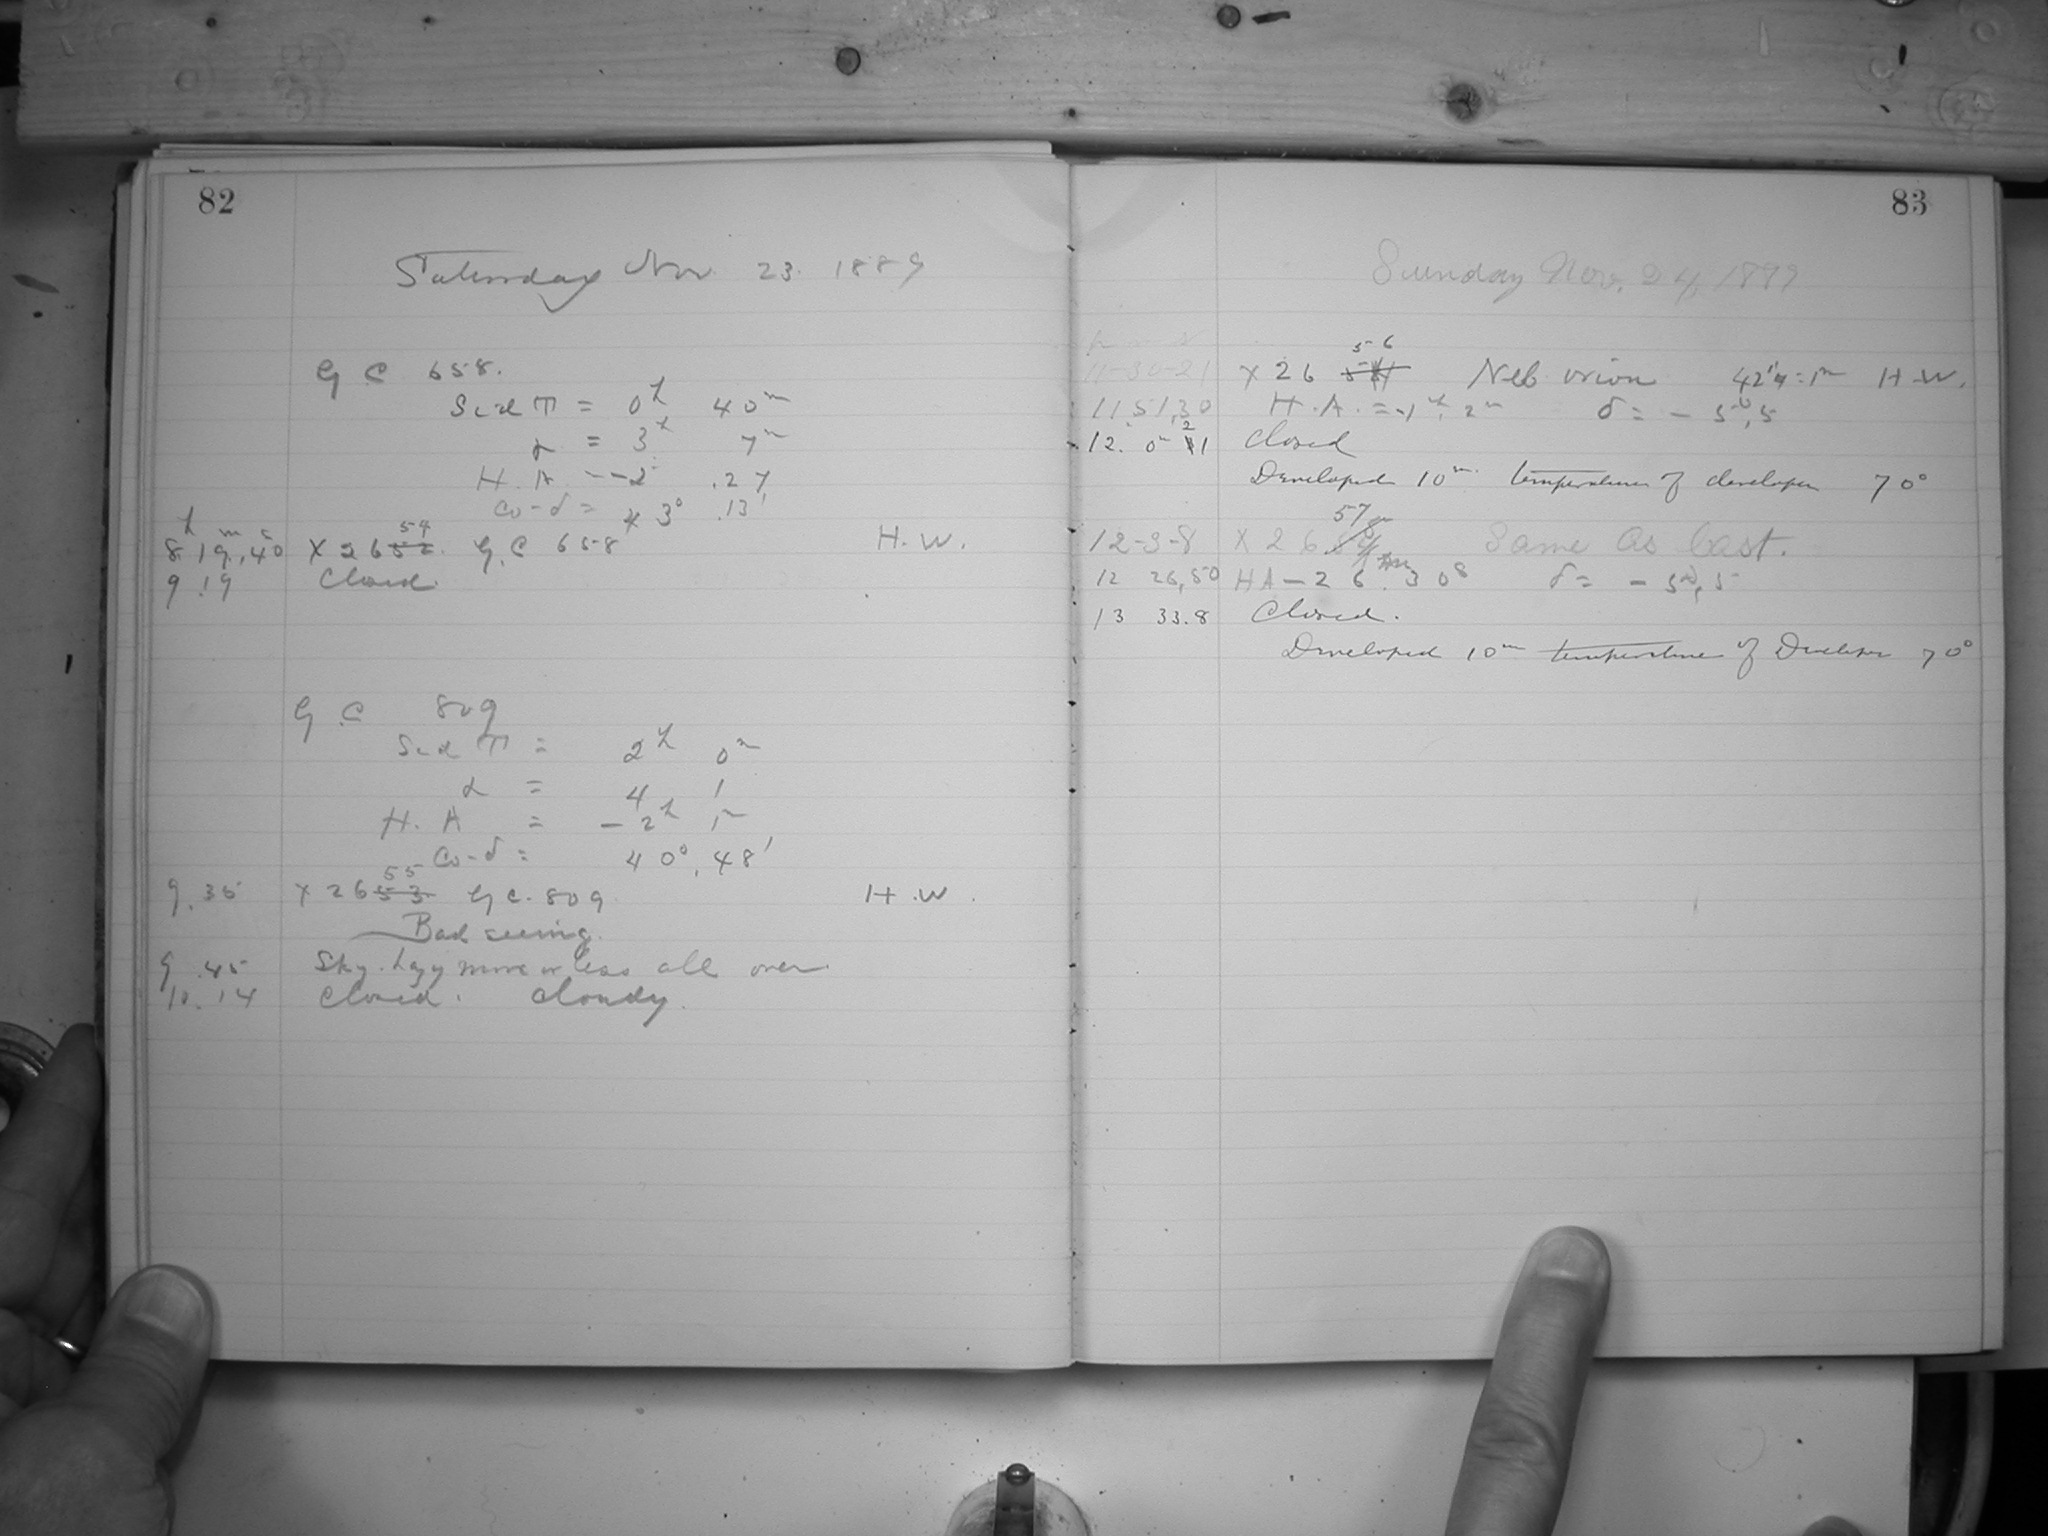 82
Saturday Nov 23. 1889
G C 658.
Sid T = 0h 40m
α = 3h 7m
H. A. - -2 .27
Co-δ = 43° .13'
h m s
54
8 19, 40 X 2652. G.C 658 H. W.
9 .19 Closed.
G C 809
Sid T = 2h 0m
α = 4 1
H. A = - 2h 1m
Co-δ = 40°, 48'
55
9.35 X 2653 G C. 809 H. W.
Bad seeing.
9 .45 Sky hazy more or less all over
10. 14 Closed. Cloudy.
83
Sunday Nov. 24, 1889
h m s
56
11-30-21 X 26 Neb orion 42"4 = 1m H. W.
11.51,30 H. A. = -1h. 2m δ = - 5°,5
12. 0m 21 Closed
Developed 10m. temperature of developer 70°
57
12-3-8 X 26 Same as last.
12 26,50 HA - 26m 30s δ = - 5°,5
13 33.8 Closed.
Developed 10m temperature of Developer 70°